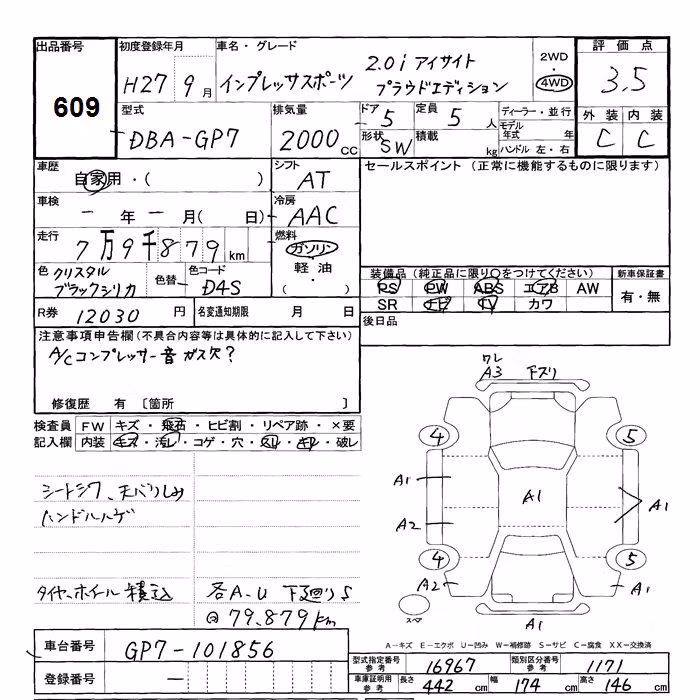 出品番号
609
初度登録年月
H27 9月
車名・グレード
インプレッサスポーツ
2.0i アイサイト
プラウドエディション
2WD
・
4WD
評価点
3.5
外装 内装
C C
型式
DBA-GP7
排気量
2000cc
ドア 5
定員 5人
形状 SW
積載 kg
ディーラー・並行
モデル年式 年
ハンドル 左・右
車歴
自家用・( )
シフト
AT
セールスポイント (正常に機能するものに限ります)
車検
ー年ー月( 日)
冷房
AAC
走行
7万9千879km
燃料
ガソリン
軽油
・( )
色 クリスタル
ブラックシリカ
色替
色コード
D4S
装備品 (純正品に限り○をつけてください)
PS PW ABS エアB AW
SR ナビ TV カワ
新車保証書
有・無
R券 12030円
名変通知期限 月 日
後日品
注意事項申告欄(不具合内容等は具体的に記入して下さい)
A/Cコンプレッサー音 ガス欠?
修復歴 有 〔箇所 〕
検査員
記入欄
FW キズ・飛石・ヒビ割・リペア跡・×要
内装 キズ・汚レ・コゲ・穴・スレ・キレ・破レ
シートシワ、天バリしみ
ハンドルハゲ
タイヤ、ホイール積込
各A.U 下廻りS
@79,879km
車台番号
GP7-101856
登録番号
ー
ワレ
A3 下ズリ
4 5
A1 A1 A1
A2
4 5
A2 A1
スペア
A1
A-キズ E-エクボ U-凹み W-補修跡 S-サビ C-腐食 XX-交換済
型式指定番号
参考
16967
類別区分番号
参考
1171
車庫証明用
参考
長さ 442cm
幅 174cm
高さ 146cm